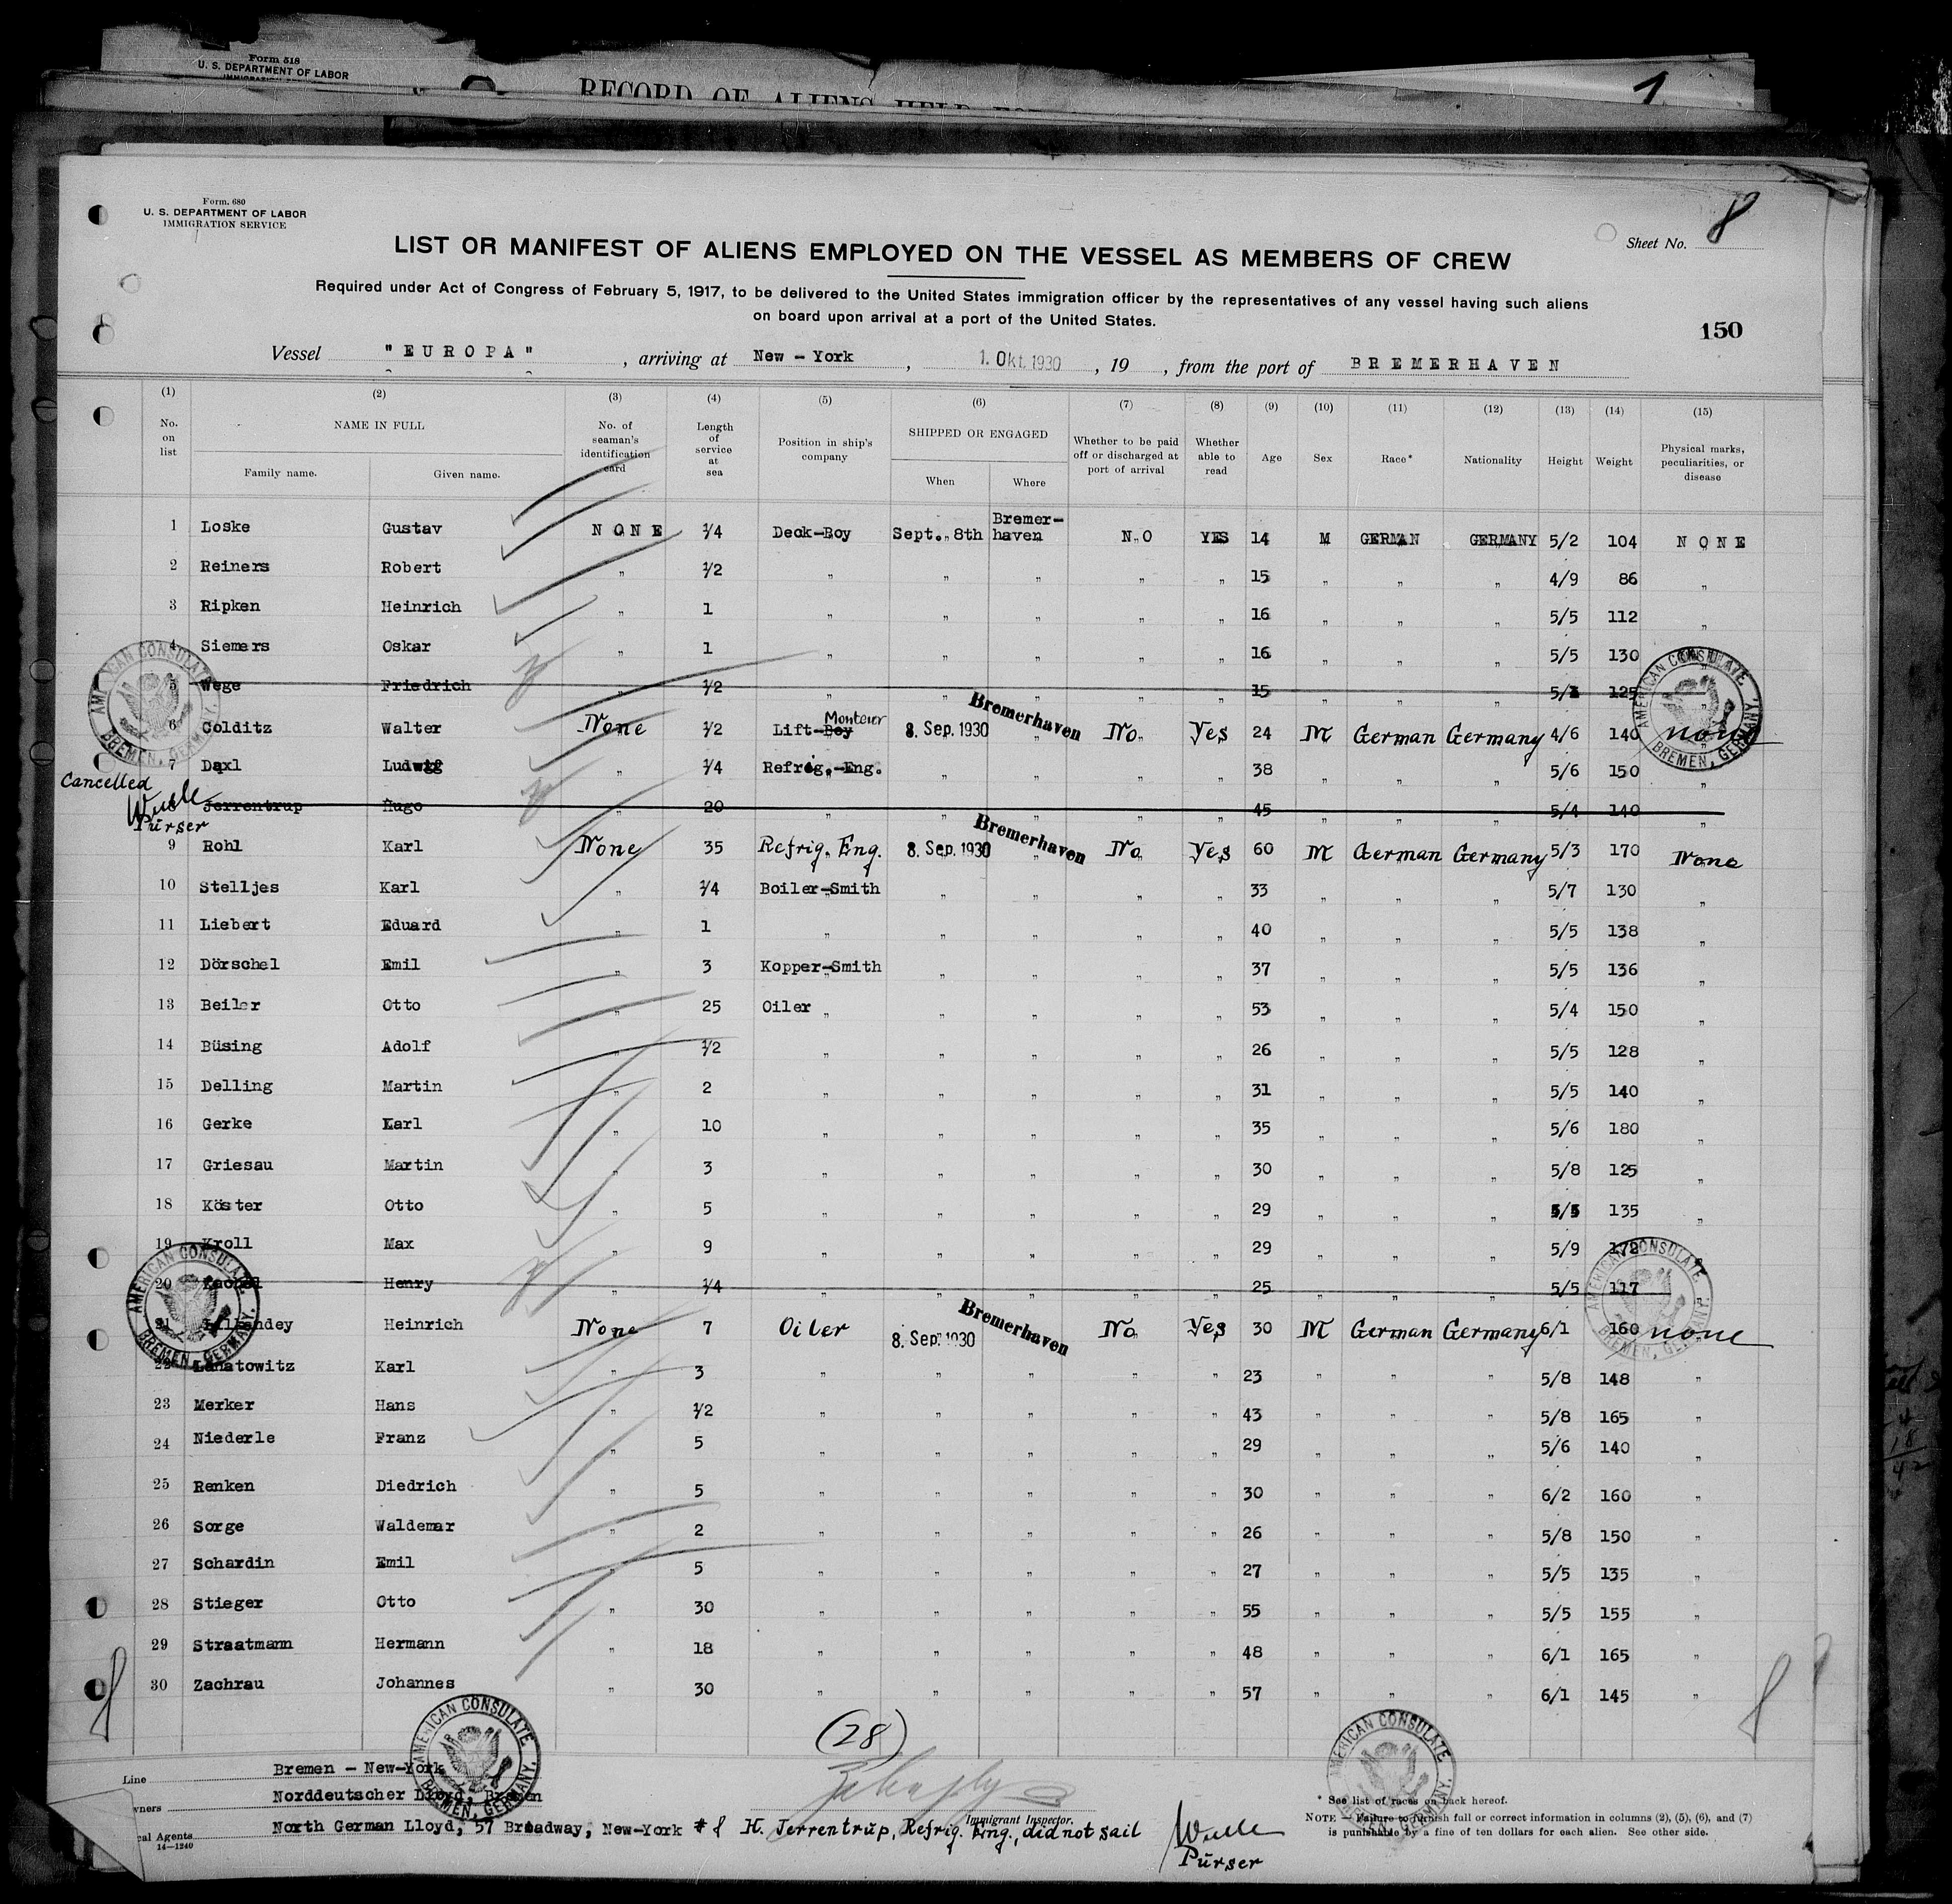 Form 518
U. S. DEPARTMENT OF LABOR
RECORD OF ALIENS HELD
1
Form. 680
U. S. DEPARTMENT OF LABOR
IMMIGRATION SERVICE
Sheet No. 8
LIST OR MANIFEST OF ALIENS EMPLOYED ON THE VESSEL AS MEMBERS OF CREW
Required under Act of Congress of February 5, 1917, to be delivered to the United States immigration officer by the representatives of any vessel having such aliens
on board upon arrival at a port of the United States.
150
Vessel "EUROPA", arriving at New-York, 1. Okt. 1930, 19 , from the port of BREMERHAVEN
(1) (2) (3) (4) (5) (6) (7) (8) (9) (10) (11) (12) (13) (14) (15)
No. on list NAME IN FULL Family name. Given name. No. of seaman's identification card Length of service at sea Position in ship's company SHIPPED OR ENGAGED When Where Whether to be paid off or discharged at port of arrival Whether able to read Age Sex Race* Nationality Height Weight Physical marks, peculiarities, or disease
1 Loske Gustav NONE 1/4 Deck-Boy Sept. 8th Bremer-haven NO YES 14 M GERMAN GERMANY 5/2 104 NONE
2 Reiners Robert " 1/2 " " " " " 15 " " " 4/9 86 "
3 Ripken Heinrich " 1 " " " " " 16 " " " 5/5 112 "
4 Siemers Oskar " 1 " " " " " 16 " " " 5/5 130 "
5 Wege Friedrich " 1/2 " " " " " 15 " " " 125 "
6 Colditz Walter None 1/2 Lift-Boy Monteur 8. Sep. 1930 Bremerhaven No Yes 24 M German Germany 4/6 140 none
7 Daxl Ludwig " 1/4 Refrig.-Eng. " " " " 38 " " " 5/6 150 "
Cancelled
Wulle
Purser
8 Jerrentrup Hugo 20 " " " " " 45 " " " 5/4 140 "
9 Rohl Karl None 35 Refrig. Eng. 8. Sep. 1930 Bremerhaven No Yes 60 M German Germany 5/3 170 None
10 Stelljes Karl " 1/4 Boiler-Smith " " " " 33 " " " 5/7 130 "
11 Liebert Eduard " 1 " " " " " 40 " " " 5/5 138 "
12 Dörschel Emil " 3 Kopper-Smith " " " " 37 " " " 5/5 136 "
13 Beiler Otto " 25 Oiler " " " " 53 " " " 5/4 150 "
14 Büsing Adolf 1/2 " " " " " 26 " " " 5/5 128 "
15 Delling Martin " 2 " " " " " 31 " " " 5/5 140 "
16 Gerke Karl " 10 " " " " " 35 " " " 5/6 180 "
17 Griesau Martin " 3 " " " " " 30 " " " 5/8 125 "
18 Köster Otto " 5 " " " " " 29 " " " 5/5 135 "
19 Kroll Max " 9 " " " " " 29 " " " 5/9 172
20 Henry " 1/4 " " " " " 25 " " " 5/5 117 "
21 Heinrich None 7 Oiler 8. Sep. 1930 Bremerhaven No Yes 30 M German Germany 6/1 160 none
22 Karl " 3 " " " " " 23 " " " 5/8 148 "
23 Merker Hans " 1/2 " " " " " 43 " " " 5/8 165 "
24 Niederle Franz " 5 " " " " " 29 " " " 5/6 140 "
25 Renken Diedrich " 5 " " " " " 30 " " " 6/2 160 "
26 Sorge Waldemar " 2 " " " " " 26 " " " 5/8 150 "
27 Schardin Emil " 5 " " " " " 27 " " " 5/5 135 "
28 Stieger Otto " 30 " " " " " 55 " " " 5/5 155 "
29 Straatmann Hermann 18 " " " " " 48 " " " 6/1 165 "
30 Zachrau Johannes " 30 " " " " " 57 " " " 6/1 145 "
AMERICAN CONSULATE BREMEN, GERMANY.
AMERICAN CONSULATE BREMEN, GERMANY.
AMERICAN CONSULATE BREMEN, GERMANY.
AMERICAN CONSULATE BREMEN, GERMANY.
AMERICAN CONSULATE BREMEN, GERMANY.
AMERICAN CONSULATE BREMEN, GERMANY.
(28)
Line Bremen - New-York
Norddeutscher Lloyd, Bremen
North German Lloyd, 57 Broadway, New-York
14—1240
Immigrant Inspector.
# 8 H. Jerrentrup, Refrig. Eng., did not sail
Wulle
Purser
* See list of races on back hereof.
NOTE — Failure to furnish full or correct information in columns (2), (5), (6), and (7)
is punishable by a fine of ten dollars for each alien. See other side.